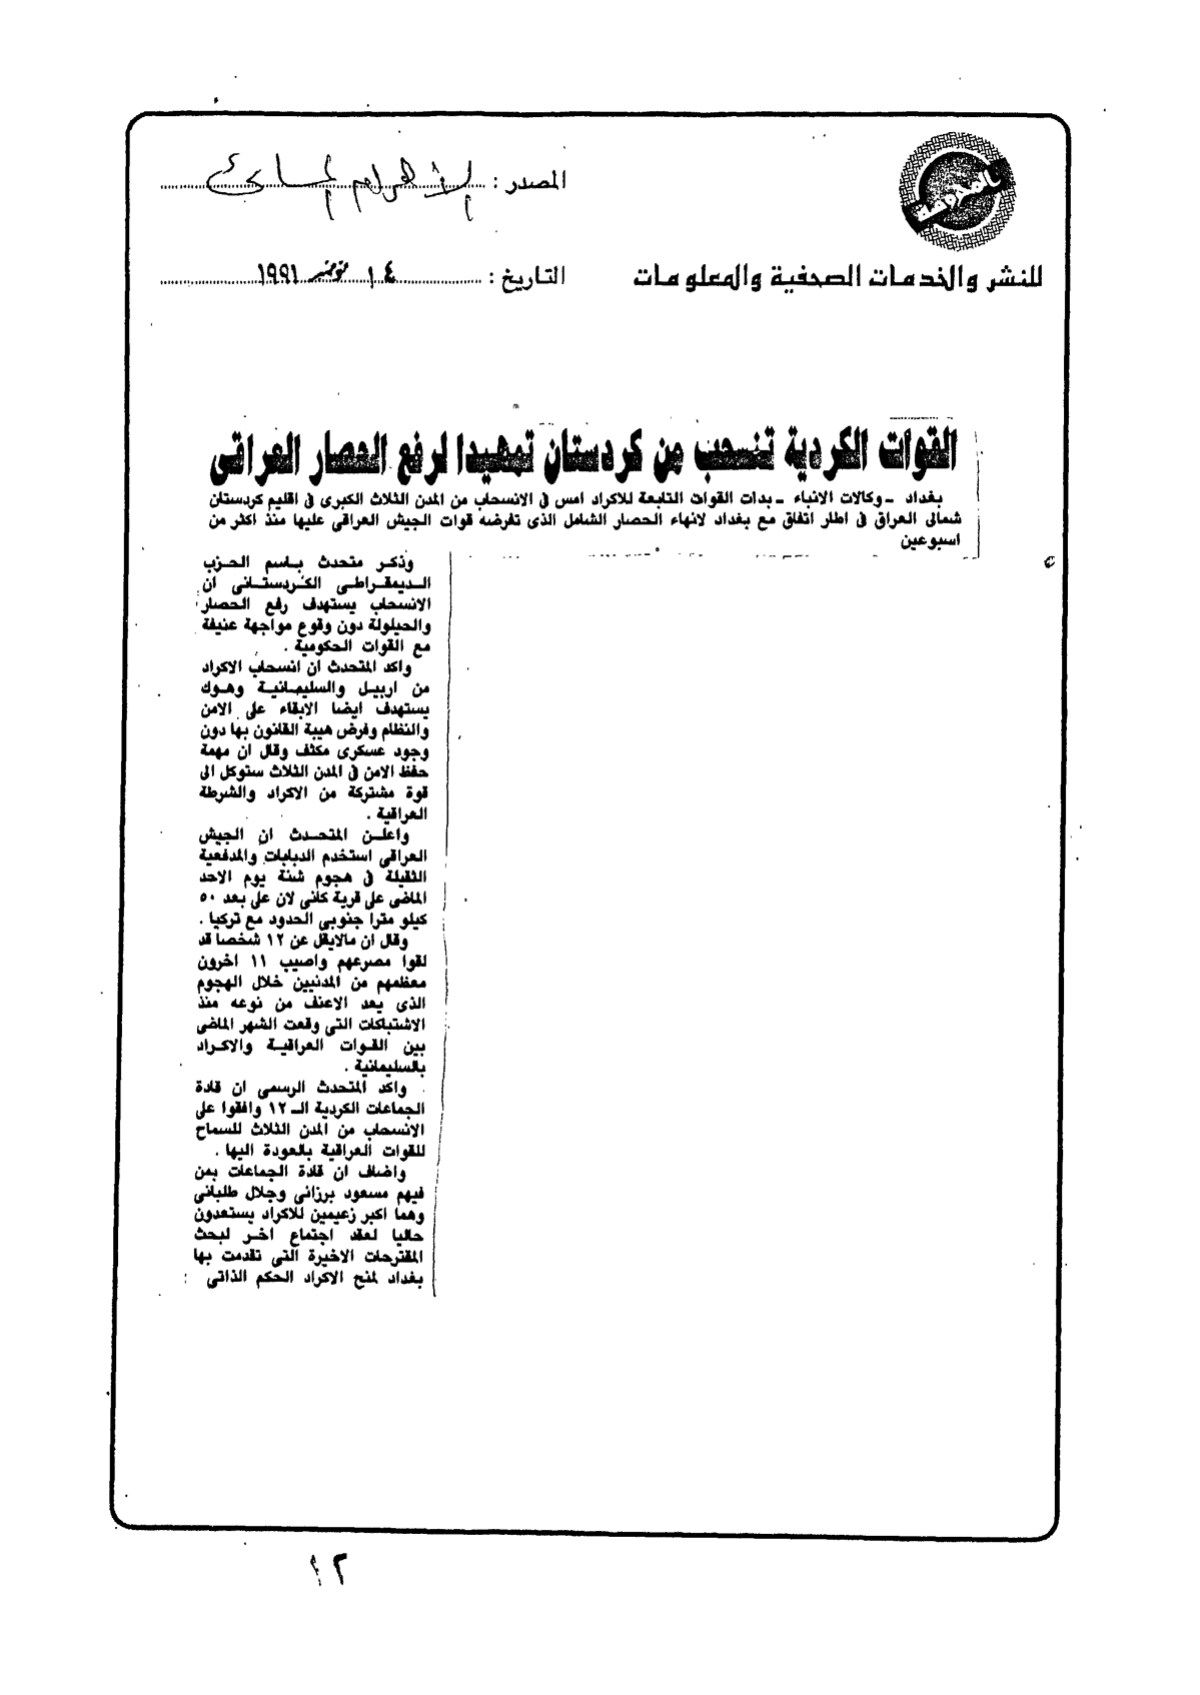 المصدر : الأهرام المسائى
للنشر والخدمات الصحفية والمعلومات
التاريخ : ١٤ نوفمبر ١٩٩١
القوات الكردية تنسحب من كردستان تمهيدا لرفع الحصار العراقى
بغداد - وكالات الانباء - بدات القوات التابعة للاكراد امس فى الانسحاب من المدن الثلاث الكبرى فى اقليم كردستان
شمالى العراق فى اطار اتفاق مع بغداد لانهاء الحصار الشامل الذى تفرضه قوات الجيش العراقى عليها منذ اكثر من
اسبوعين
وذكر متحدث باسم الحزب
الديمقراطى الكردستانى ان
الانسحاب يستهدف رفع الحصار
والحيلولة دون وقوع مواجهة عنيفة
مع القوات الحكومية .
واكد المتحدث ان انسحاب الاكراد
من اربيل والسليمانية وهوك
يستهدف ايضا الابقاء على الامن
والنظام وفرض هيبة القانون بها دون
وجود عسكرى مكثف وقال ان مهمة
حفظ الامن فى المدن الثلاث ستوكل الى
قوة مشتركة من الاكراد والشرطة
العراقية .
واعلن المتحدث ان الجيش
العراقى استخدم الدبابات والمدفعية
الثقيلة فى هجوم شنة يوم الاحد
الماضى على قرية كانى لان على بعد ٥٠
كيلو مترا جنوبى الحدود مع تركيا .
وقال ان مالايقل عن ١٢ شخصا قد
لقوا مصرعهم واصيب ١١ اخرون
معظمهم من المدنيين خلال الهجوم
الذى يعد الاعنف من نوعه منذ
الاشتباكات التى وقعت الشهر الماضى
بين القوات العراقية والاكراد
بالسليمانية .
واكد المتحدث الرسمى ان قادة
الجماعات الكردية الـ ١٢ وافقوا على
الانسحاب من المدن الثلاث للسماح
للقوات العراقية بالعودة اليها .
واضاف ان قادة الجماعات بمن
فيهم مسعود برزانى وجلال طلبانى
وهما اكبر زعيمين للاكراد يستعدون
حاليا لعقد اجتماع اخر لبحث
المقترحات الاخيرة التى تقدمت بها
بغداد لمنح الاكراد الحكم الذاتى